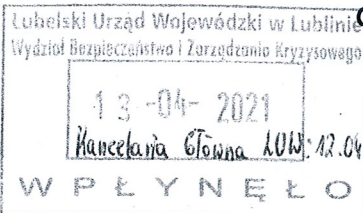 Lubelski Urząd Wojewódzki w Lublinie
Wydział Bezpieczeństwa i Zarządzania Kryzysowego
13 -04- 2021
Kancelaria Główna LUW: 12.04
WPŁYNĘŁO